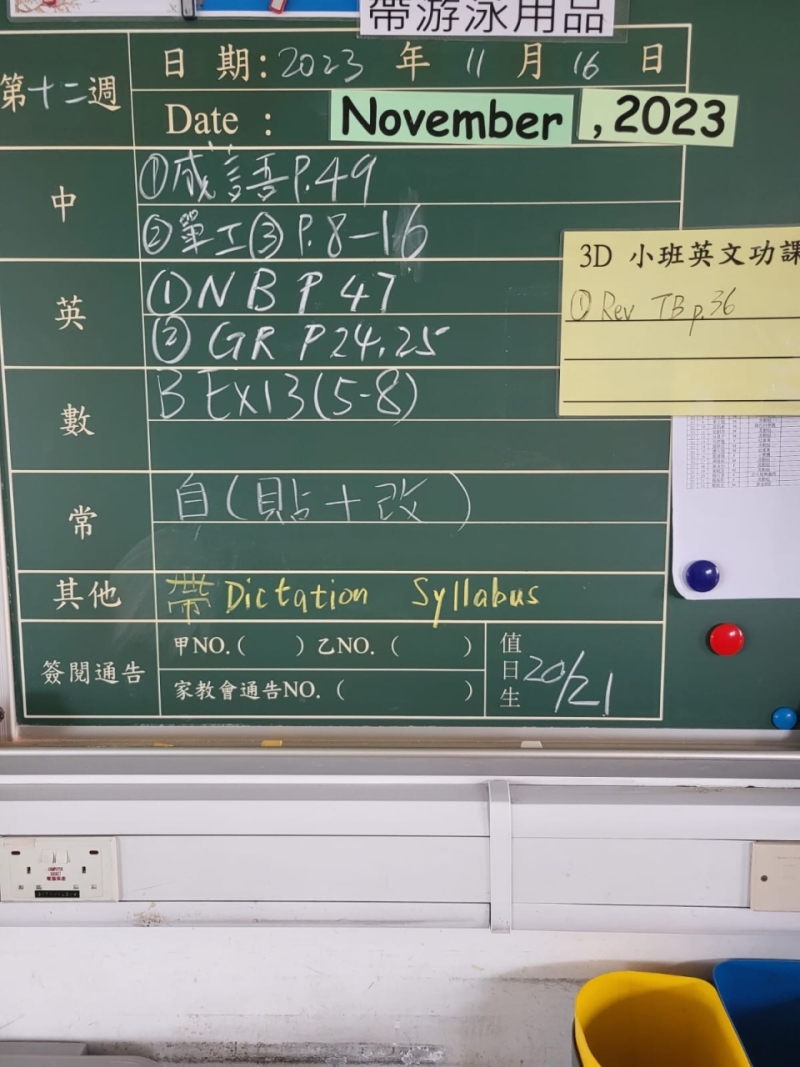 帶游泳用品
第十二週
日 期: 2023 年 11 月 16 日
Date : November , 2023
中
①成語P.49
②單工③P.8-16
英
①NB P 47
②GR P24,25
數
B EX13(5-8)
常
自(貼+改)
其他
帶 Dictation Syllabus
簽閱通告
甲NO.( ) 乙NO. ( )
家教會通告NO. ( )
值日生 20/21
3D 小班英文功課
① Rev TB p.36